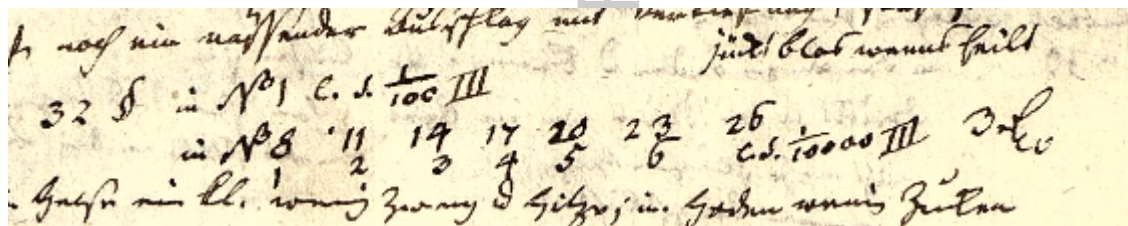 noch ein nässender Ausschlag mit
jückt blos wenns heilt
32 § in No 1 c. d. 1/100 III
in No 8 11 14 17 20 23 26 c. d. 1/10000 III
1 2 3 4 5 6
ein kl. wenig Zwang d Hitze; im Hoden wenig Zucken